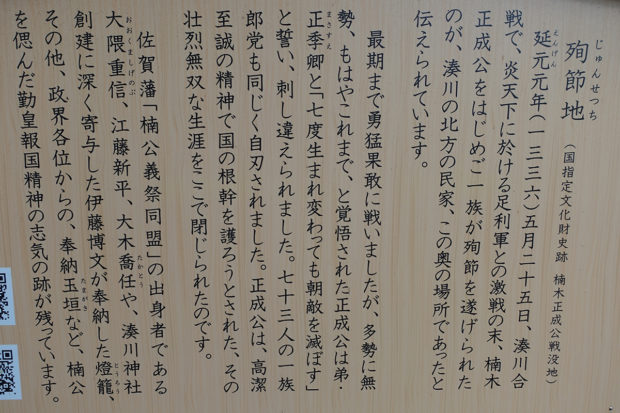 じゅんせつち
殉節地(国指定文化財史跡 楠木正成公戦没地)
えんげん
延元元年(一三三六)五月二十五日、湊川合
戦で、炎天下に於ける足利軍との激戦の末、楠木
正成公をはじめご一族が殉節を遂げられた
のが、湊川の北方の民家、この奥の場所であったと
伝えられています。
最期まで勇猛果敢に戦いましたが、多勢に無
勢、もはやこれまで、と覚悟された正成公は弟・
まさすえ
正季卿と「七度生まれ変わっても朝敵を滅ぼす」
と誓い、刺し違えられました。七十三人の一族
郎党も同じく自刃されました。正成公は、高潔
至誠の精神で国の根幹を護ろうとされた、その
壮烈無双な生涯をここで閉じられたのです。
佐賀藩「楠公義祭同盟」の出身者である
おおくましげのぶ
大隈重信、江藤新平、大木喬任や、湊川神社
たかとう
創建に深く寄与した伊藤博文が奉納した燈籠、
とうろう
その他、政界各位からの、奉納玉垣など、楠公
たまがき
を偲んだ勤皇報国精神の志気の跡が残っています。